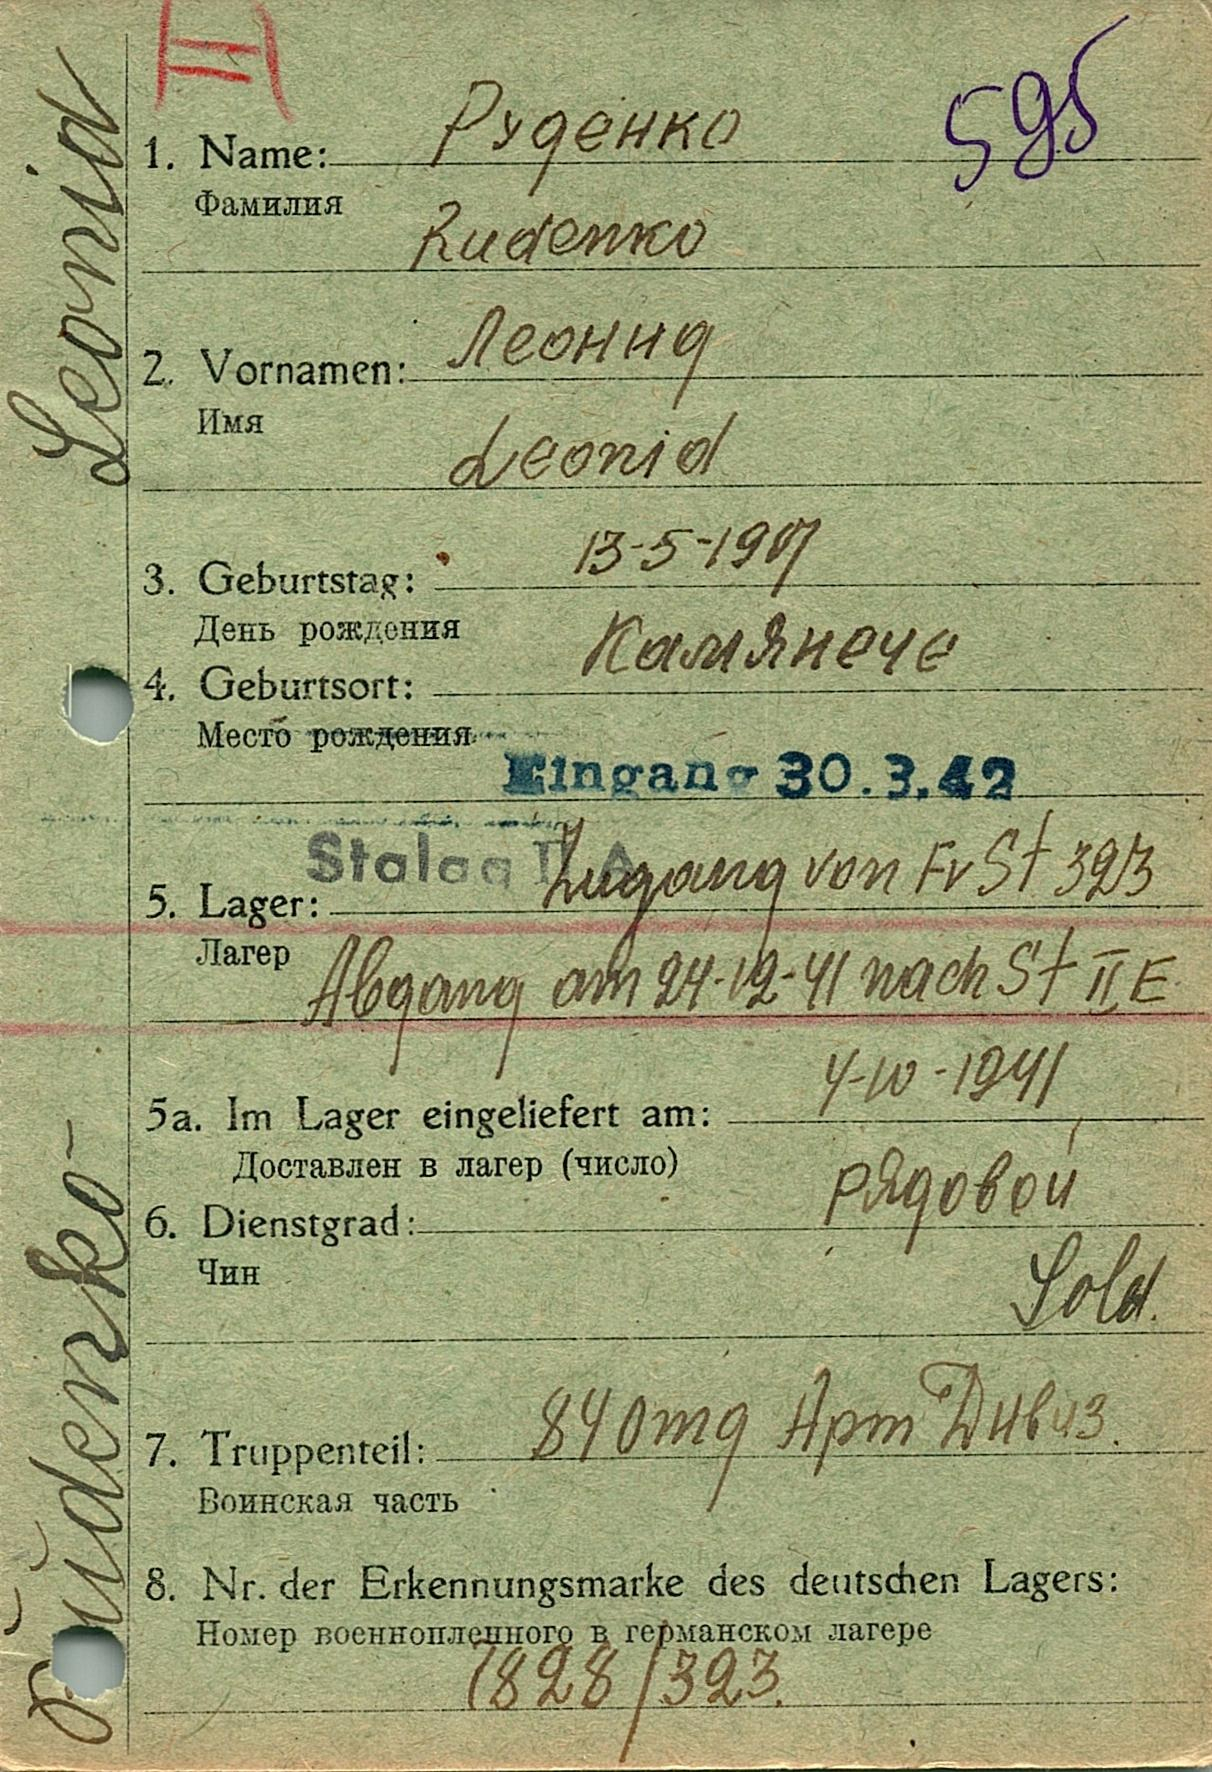 III
595
Leonid
Rudenko
1. Name: Руденко
Фамилия
Rudenko
2. Vornamen: Леонид
Имя
Leonid
3. Geburtstag: 13-5-1907
День рождения
4. Geburtsort: Камянече
Место рождения
Eingang 30.3.42
Stalag II A
5. Lager: Zugang von Fr St 323
Лагер
Abgang am 24-12-41 nach St II E
5a. Im Lager eingeliefert am: 4-10-1941
Доставлен в лагер (число)
6. Dienstgrad: рядовой
Чин
Sold.
7. Truppenteil: 840 отд Арт Дивиз.
Воинская часть
8. Nr. der Erkennungsmarke des deutschen Lagers:
Номер военнопленного в германском лагере
1828/323.